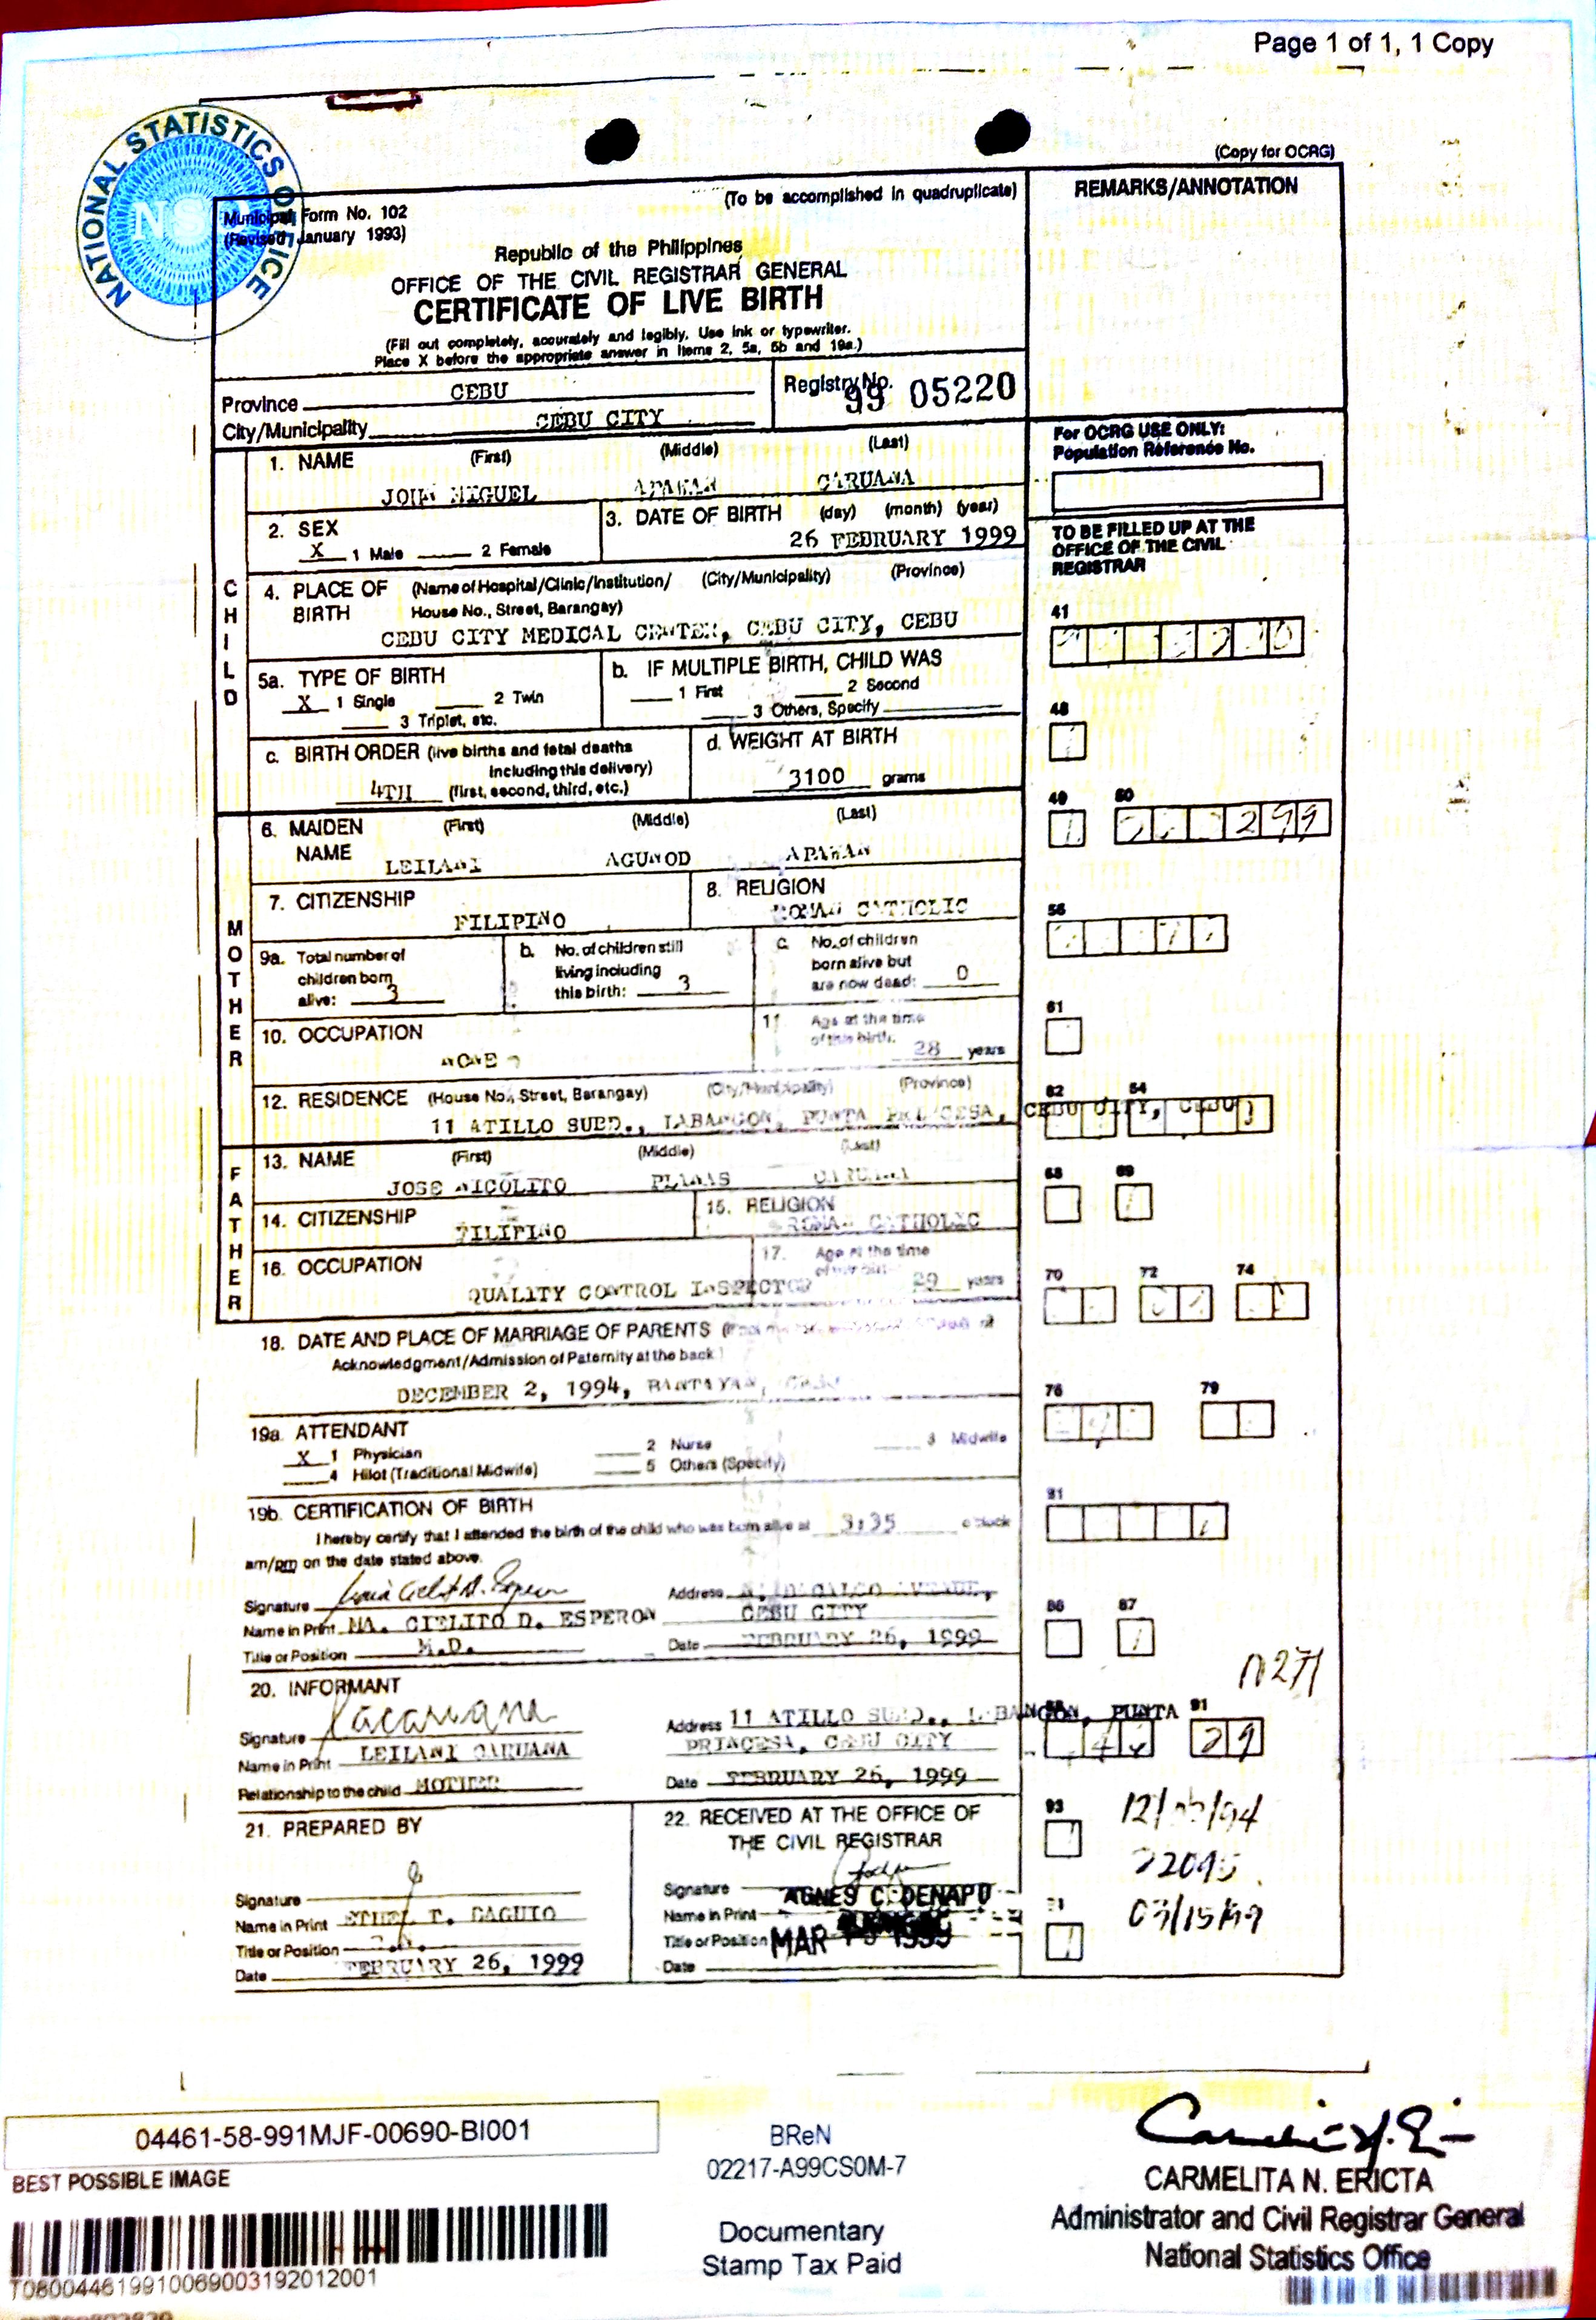 Page 1 of 1, 1 Copy
(Copy for OCRG)
NATIONAL STATISTICS OFFICE
Municipal Form No. 102
(Revised January 1993)
(To be accomplished in quadruplicate)
REMARKS/ANNOTATION
Republic of the Philippines
OFFICE OF THE CIVIL REGISTRAR GENERAL
CERTIFICATE OF LIVE BIRTH
(Fill out completely, accurately and legibly. Use ink or typewriter.
Place X before the appropriate answer in Items 2, 5a, 5b and 19a.)
Province CEBU
City/Municipality CEBU CITY
Registry No. 99 05220
For OCRG USE ONLY:
Population Reference No.
CHILD
1. NAME (First) (Middle) (Last)
JOHN MIGUEL APAWAN CARUANA
2. SEX
X 1 Male 2 Female
3. DATE OF BIRTH (day) (month) (year)
26 FEBRUARY 1999
TO BE FILLED UP AT THE
OFFICE OF THE CIVIL
REGISTRAR
4. PLACE OF BIRTH (Name of Hospital/Clinic/Institution/ (City/Municipality) (Province)
House No., Street, Barangay)
CEBU CITY MEDICAL CENTER, CEBU CITY, CEBU
41
5a. TYPE OF BIRTH
X 1 Single 2 Twin
3 Triplet, etc.
b. IF MULTIPLE BIRTH, CHILD WAS
1 First 2 Second
3 Others, Specify
48
c. BIRTH ORDER (live births and fetal deaths
including this delivery)
4TH (first, second, third, etc.)
d. WEIGHT AT BIRTH
3100 grams
49 50
MOTHER
6. MAIDEN NAME (First) (Middle) (Last)
LEILANI AGUNOD APAWAN
7. CITIZENSHIP
FILIPINO
8. RELIGION
ROMAN CATHOLIC
56
9a. Total number of
children born
alive: 3
b. No. of children still
living including
this birth: 3
c. No. of children
born alive but
are now dead: 0
10. OCCUPATION
NONE
11 Age at the time
of this birth: 28 years
61
12. RESIDENCE (House No., Street, Barangay) (City/Municipality) (Province)
11 ATILLO SUBD., LABANGON, PUNTA PRINCESA, CEBU CITY, CEBU
62 64
FATHER
13. NAME (First) (Middle) (Last)
JOSE NICOLITO PLANAS CARUANA
14. CITIZENSHIP
FILIPINO
15. RELIGION
ROMAN CATHOLIC
68 69
16. OCCUPATION
QUALITY CONTROL INSPECTOR
17. Age at the time
29 years
70 72 74
18. DATE AND PLACE OF MARRIAGE OF PARENTS
Acknowledgment/Admission of Paternity at the back
DECEMBER 2, 1994, BANTAYAN, CEBU
76 79
19a. ATTENDANT
X 1 Physician 2 Nurse 3 Midwife
4 Hilot (Traditional Midwife) 5 Others (Specify)
19b. CERTIFICATION OF BIRTH
I hereby certify that I attended the birth of the child who was born alive at 3:35 o'clock
am/pm on the date stated above.
81
Signature
Name in Print MA. CIELITO D. ESPERON
Title or Position M.D.
Address N. BACALSO AVENUE,
CEBU CITY
Date FEBRUARY 26, 1999
86 87
20. INFORMANT
Signature
Name in Print LEILANI CARUANA
Relationship to the child MOTHER
Address 11 ATILLO SUBD., LABANGON, PUNTA
PRINCESA, CEBU CITY
Date FEBRUARY 26, 1999
91
29
21. PREPARED BY
Signature
Name in Print ETHEL T. DAGUIO
Title or Position
Date FEBRUARY 26, 1999
22. RECEIVED AT THE OFFICE OF
THE CIVIL REGISTRAR
Signature
Name in Print AGNES C. DENAPO
Title or Position
Date
93
03/15/99
04461-58-991MJF-00690-BI001
BEST POSSIBLE IMAGE
T080044619910069003192012001
BReN
02217-A99CS0M-7
Documentary
Stamp Tax Paid
CARMELITA N. ERICTA
Administrator and Civil Registrar General
National Statistics Office